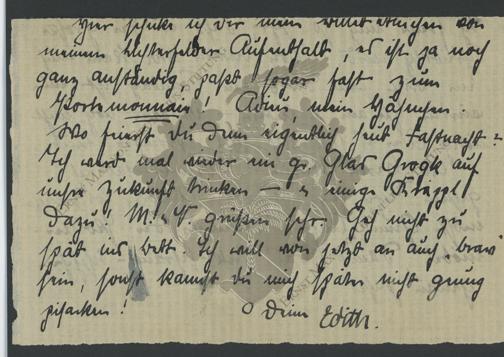 Hier schicke ich dir mein Billet von
meinem Lichterfelder Aufenthalt, es ist ja noch
ganz anständig, paßt sogar fast zum
Portemonnaie! Adieu mein Häschen.
Wo feierst du denn eigentlich heut Fastnacht?
Ich werd mal wieder ein gr. Glas Grogk auf
unsre Zukunft trinken – u. einige Kräppl
dazu! M. u. V. grüßen sehr. Geh nicht zu
spät ins Bett. Ich will von jetzt an auch "brav"
sein, sonst kannst du mich später nicht genug
pisacken! Deine Edith.